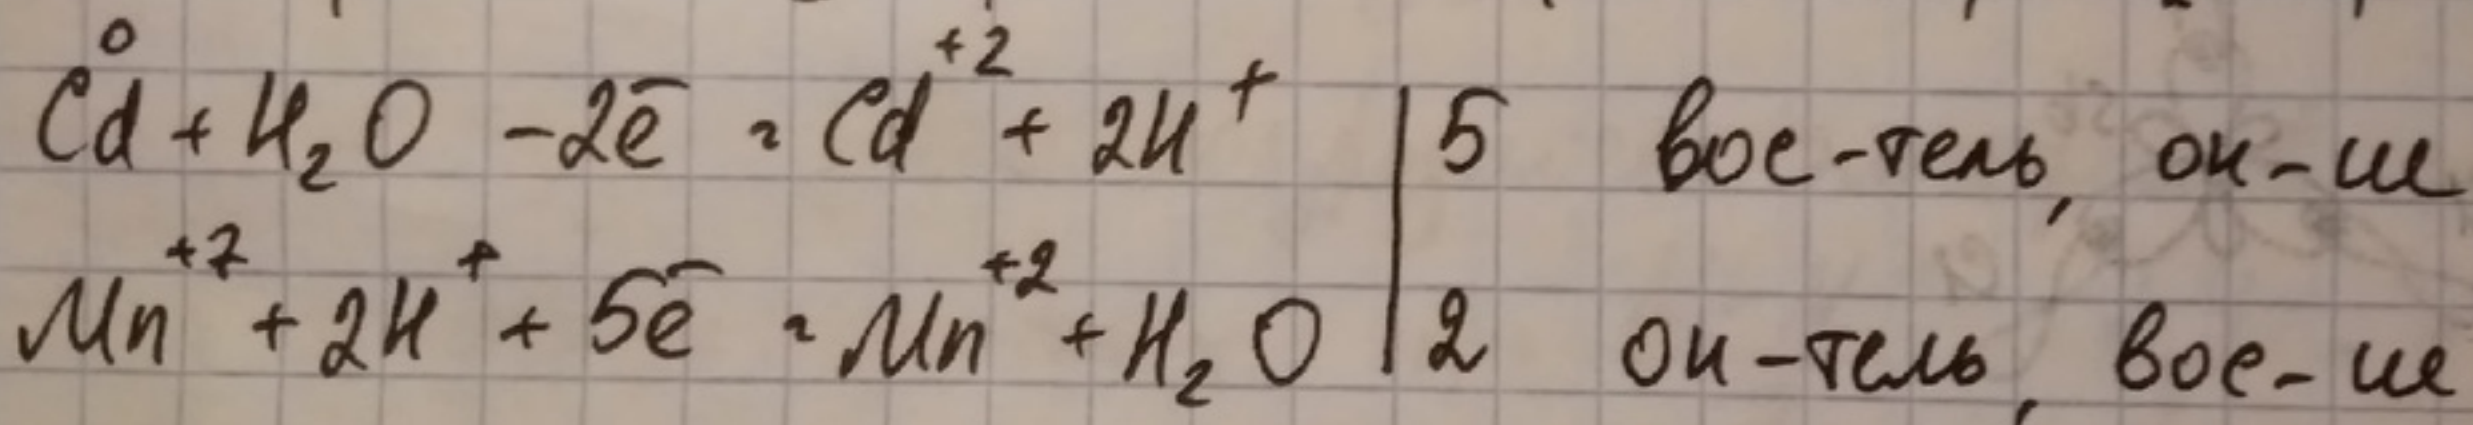 Cd⁰ + H₂O - 2ē = Cd⁺² + 2H⁺ | 5 вос-тель, ок-ие
Mn⁺⁷ + 2H⁺ + 5ē = Mn⁺² + H₂O | 2 ок-тель, вос-ие